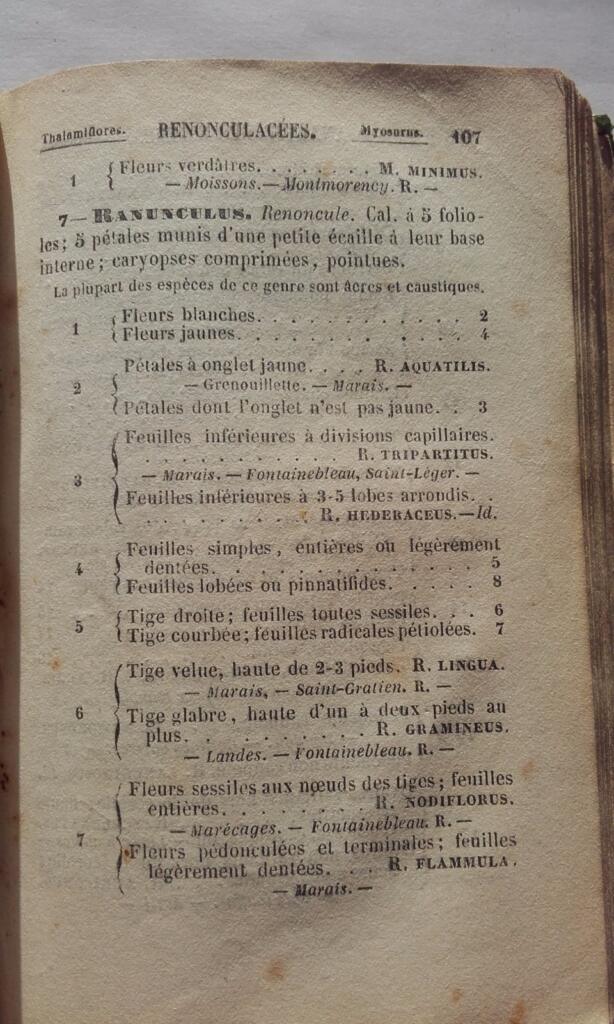 Thalamiflores. RENONCULACÉES. Myosurus. 107
1 Fleurs verdâtres. . . . . . . . M. MINIMUS.
— Moissons. — Montmorency. R. —
7 — RANUNCULUS. Renoncule. Cal. à 5 folio-
les; 5 pétales munis d'une petite écaille à leur base
interne; caryopses comprimées, pointues.
La plupart des espèces de ce genre sont âcres et caustiques.
1 Fleurs blanches. . . . . . . . . . . . 2
Fleurs jaunes. . . . . . . . . . . . 4
Pétales à onglet jaune. . . . R. AQUATILIS.
2 — Grenouillette. — Marais. —
Pétales dont l'onglet n'est pas jaune. . 3
Feuilles inférieures à divisions capillaires.
. . . . . . . . . . R. TRIPARTITUS.
3 — Marais. — Fontainebleau, Saint-Léger. —
Feuilles inférieures à 3-5 lobes arrondis. .
. . . . . . . . R. HEDERACEUS. — Id.
4 Feuilles simples, entières ou légèrement
dentées. . . . . . . . . . . . . 5
Feuilles lobées ou pinnatifides. . . . . 8
5 Tige droite; feuilles toutes sessiles. . . 6
Tige courbée; feuilles radicales pétiolées. 7
Tige velue, haute de 2-3 pieds. R. LINGUA.
— Marais, — Saint-Gratien. R. —
6 Tige glabre, haute d'un à deux pieds au
plus. . . . . . . . . R. GRAMINEUS.
— Landes. — Fontainebleau. R. —
Fleurs sessiles aux nœuds des tiges; feuilles
entières. . . . . . . . . R. NODIFLORUS.
— Marécages. — Fontainebleau. R. —
7 Fleurs pédonculées et terminales; feuilles
légèrement dentées. . . R. FLAMMULA.
— Marais. —